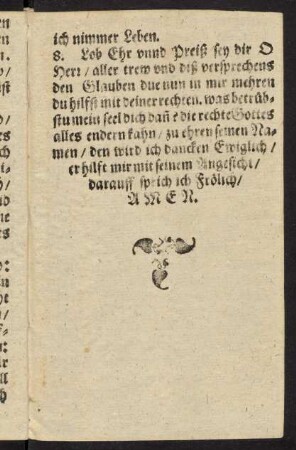 ich nimmer Leben.
8. Lob Ehr vnnd Preiß sey dir O
Herr / aller trew vnd diß versprechens
den Glauben due nun in mir mehren
du hilffst mit deiner rechten. was betrüb-
stu mein seel dich dañ e die rechte Gottes
alles endern kahn / zu ehren seinen Na-
men / den wird ich dancken Ewiglich /
er hilft mir mit seinem Angesicht /
darauff sprich ich Frölich /
A M E N.